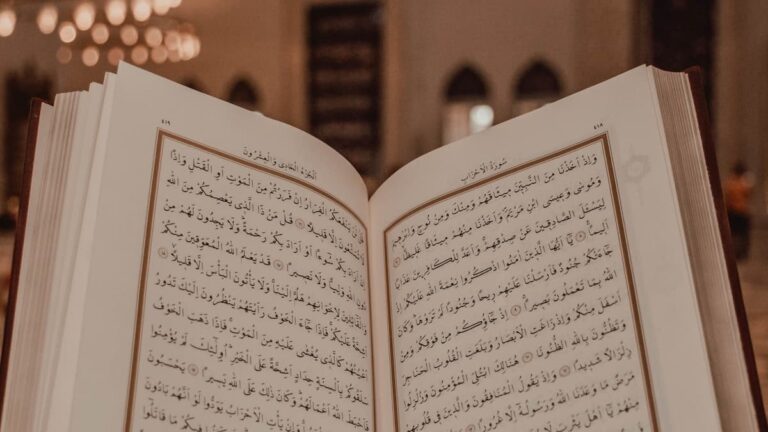 ٤١٨
سُورَةُ الْاَحْزَابِ
وَاِذْ اَخَذْنَا مِنَ النَّبِيّٖنَ مِيثَاقَهُمْ وَمِنْكَ وَمِنْ نُوحٍ وَاِبْرٰهِيمَ
وَمُوسٰى وَعِيسَى ابْنِ مَرْيَمَ وَاَخَذْنَا مِنْهُمْ مِيثَاقًا غَلِيظًا ﴿٧﴾
لِيَسْـَٔلَ الصَّادِقِينَ عَنْ صِدْقِهِمْ وَاَعَدَّ لِلْكَافِرِينَ عَذَابًا
اَلِيمًا ﴿٨﴾ يَٓا اَيُّهَا الَّذِينَ اٰمَنُوا اذْكُرُوا نِعْمَةَ اللّٰهِ عَلَيْكُمْ اِذْ
جَٓاءَتْكُمْ جُنُودٌ فَاَرْسَلْنَا عَلَيْهِمْ رِيحًا وَجُنُودًا لَمْ تَرَوْهَا وَكَانَ
اللّٰهُ بِمَا تَعْمَلُونَ بَصِيرًا ﴿٩﴾ اِذْ جَٓاؤُكُمْ مِنْ فَوْقِكُمْ وَمِنْ
اَسْفَلَ مِنْكُمْ وَاِذْ زَاغَتِ الْاَبْصَارُ وَبَلَغَتِ الْقُلُوبُ الْحَنَاجِرَ
وَتَظُنُّونَ بِاللّٰهِ الظُّنُونَا ﴿١٠﴾ هُنَالِكَ ابْتُلِيَ الْمُؤْمِنُونَ وَزُلْزِلُوا
زِلْزَالًا شَدِيدًا ﴿١١﴾ وَاِذْ يَقُولُ الْمُنَافِقُونَ وَالَّذِينَ فِي قُلُوبِهِمْ
مَرَضٌ مَا وَعَدَنَا اللّٰهُ وَرَسُولُهُٓ اِلَّا غُرُورًا ﴿١٢﴾
مِنْهُمْ يَٓا اَهْلَ يَثْرِبَ
٤١٩
اَلْجُزْءُ الْحَادِي وَالْعِشْرُونَ
قُلْ لَنْ يَنْفَعَكُمُ الْفِرَارُ اِنْ فَرَرْتُمْ مِنَ الْمَوْتِ اَوِ الْقَتْلِ وَاِذًا
لَا تُمَتَّعُونَ اِلَّا قَلِيلًا ﴿١٦﴾ قُلْ مَنْ ذَا الَّذِي يَعْصِمُكُمْ مِنَ اللّٰهِ
اِنْ اَرَادَ بِكُمْ سُٓوءًا اَوْ اَرَادَ بِكُمْ رَحْمَةً وَلَا يَجِدُونَ لَهُمْ مِنْ
دُونِ اللّٰهِ وَلِيًّا وَلَا نَصِيرًا ﴿١٧﴾ قَدْ يَعْلَمُ اللّٰهُ الْمُعَوِّقِينَ مِنْكُمْ
وَالْقَٓائِلِينَ لِاِخْوَانِهِمْ هَلُمَّ اِلَيْنَا وَلَا يَأْتُونَ الْبَأْسَ اِلَّا قَلِيلًا ﴿١٨﴾
اَشِحَّةً عَلَيْكُمْ فَاِذَا جَٓاءَ الْخَوْفُ رَاَيْتَهُمْ يَنْظُرُونَ اِلَيْكَ تَدُورُ
اَعْيُنُهُمْ كَالَّذِي يُغْشٰى عَلَيْهِ مِنَ الْمَوْتِ فَاِذَا ذَهَبَ الْخَوْفُ
سَلَقُوكُمْ بِاَلْسِنَةٍ حِدَادٍ اَشِحَّةً عَلَى الْخَيْرِ اُو۬لٰٓئِكَ لَمْ يُؤْمِنُوا
فَاَحْبَطَ اللّٰهُ اَعْمَالَهُمْ وَكَانَ ذٰلِكَ عَلَى اللّٰهِ يَسِيرًا ﴿١٩﴾ يَحْسَبُونَ
الْاَحْزَابَ لَمْ يَذْهَبُوا وَاِنْ يَأْتِ الْاَحْزَابُ يَوَدُّوا لَوْ اَنَّهُمْ بَادُونَ
فِيكُمْ مَا قَاتَلُٓوا